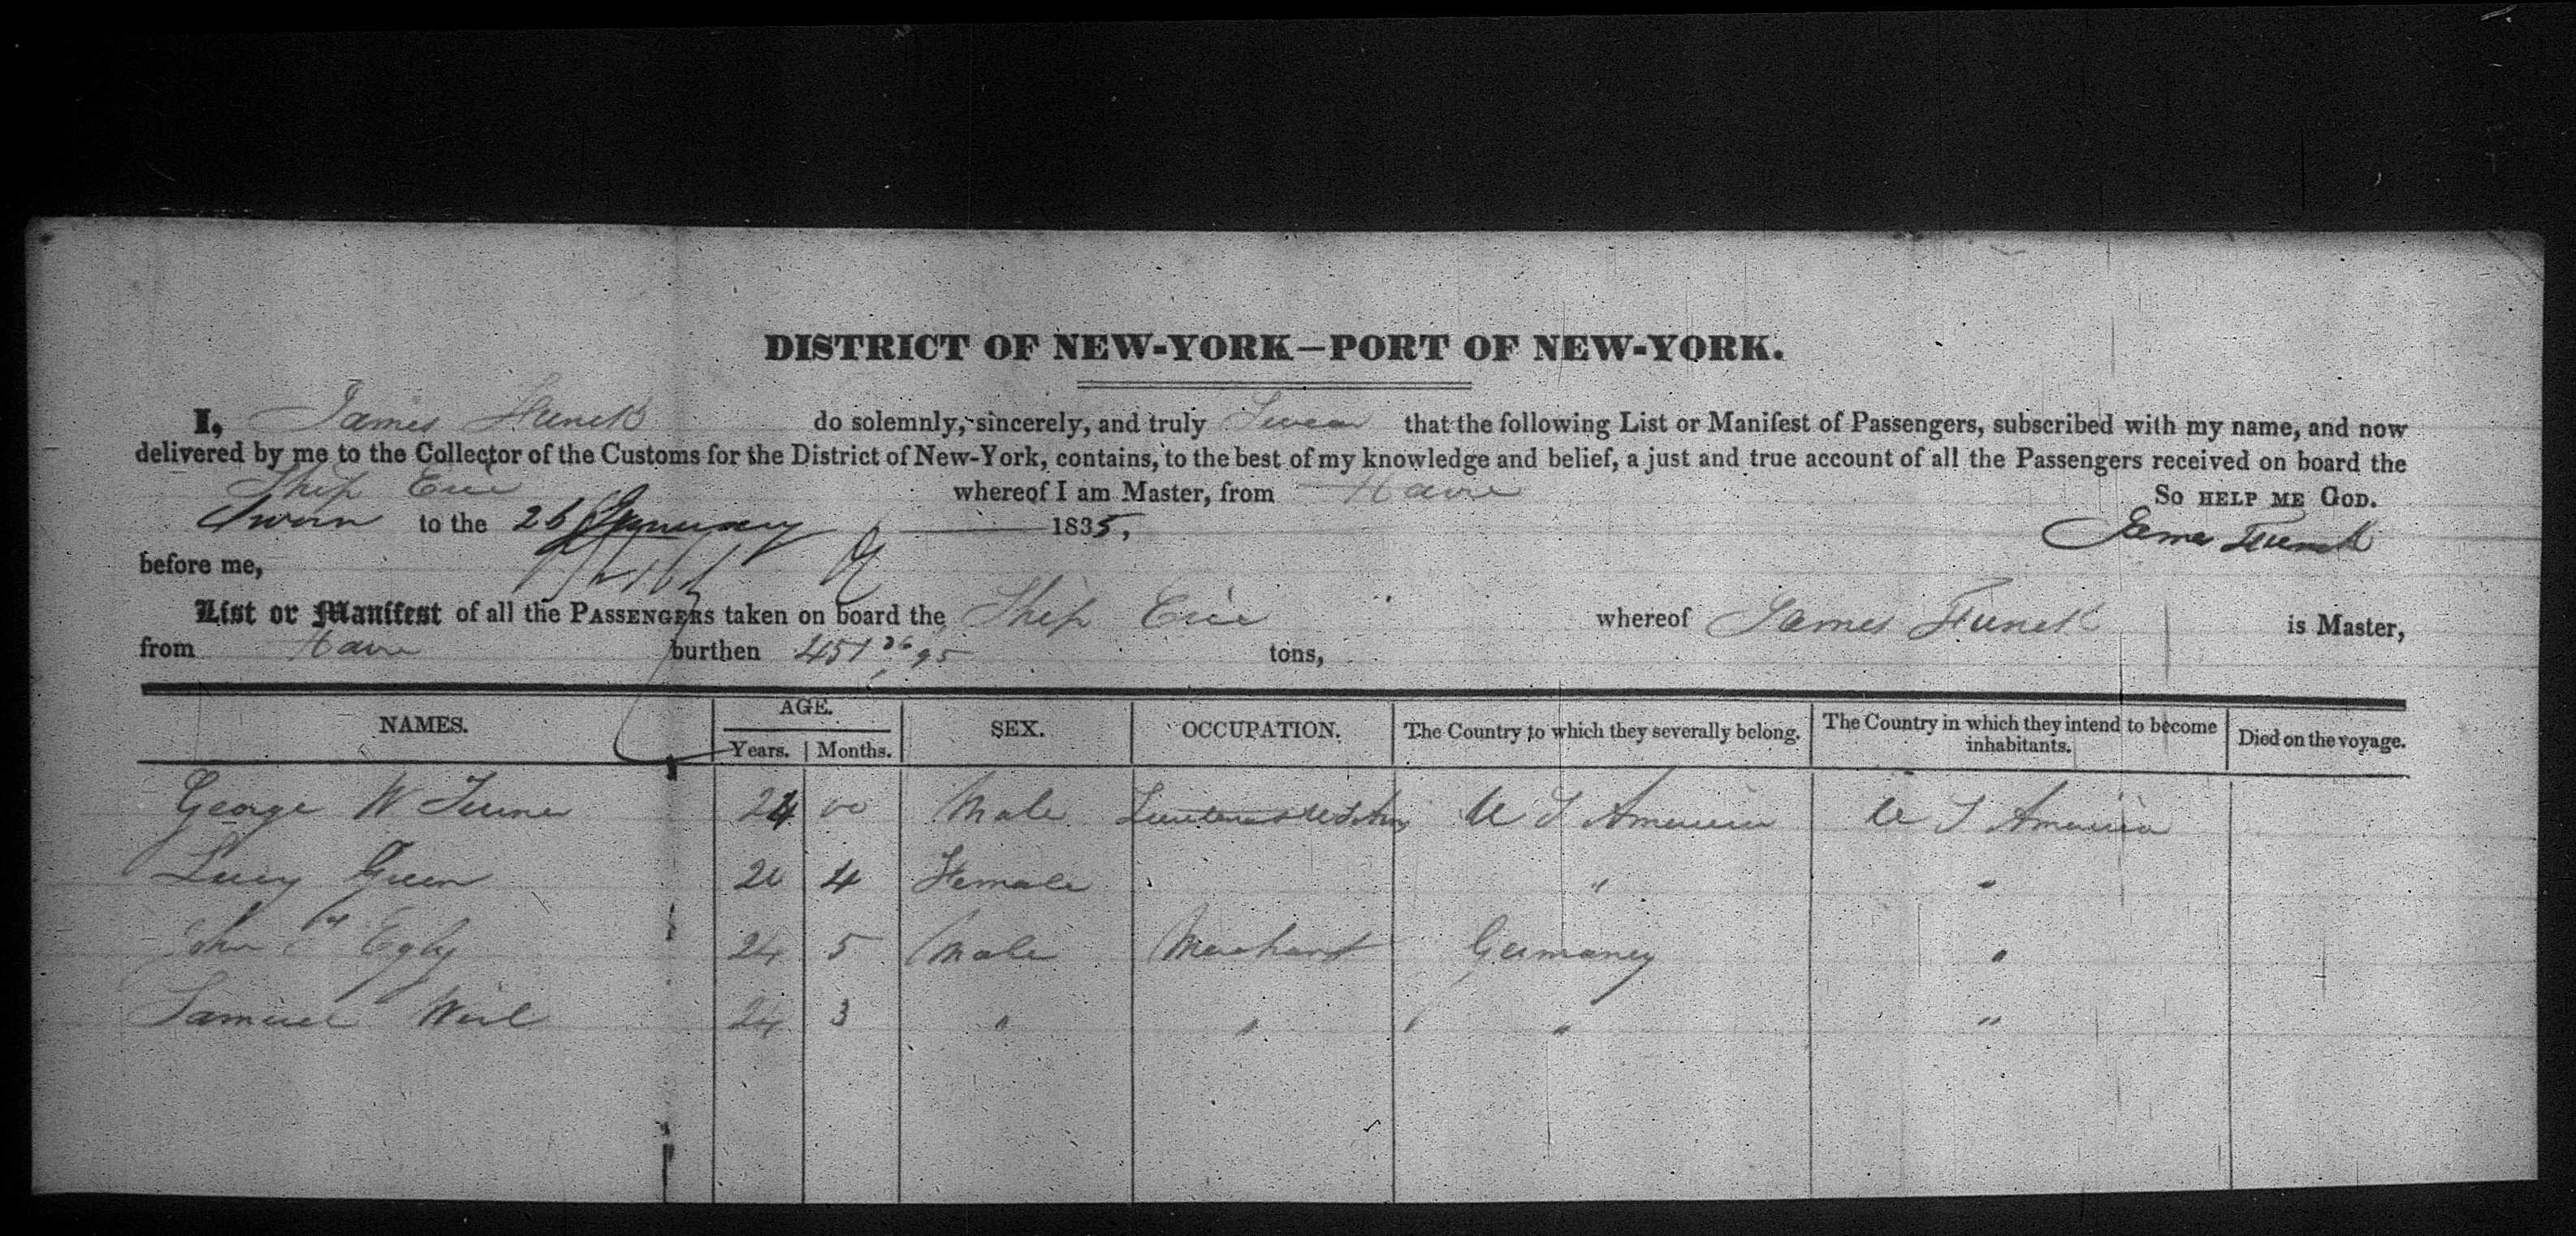 DISTRICT OF NEW-YORK—PORT OF NEW-YORK.
I, James Funck do solemnly, sincerely, and truly Swear that the following List or Manifest of Passengers, subscribed with my name, and now
delivered by me to the Collector of the Customs for the District of New-York, contains, to the best of my knowledge and belief, a just and true account of all the Passengers received on board the
Ship Erie whereof I am Master, from Havre So HELP ME GOD.
Sworn to the 26 January 1835, James Funck
before me,
List or Manifest of all the PASSENGERS taken on board the Ship Erie whereof James Funck is Master,
from Havre burthen 451 36/95 tons,
NAMES. AGE. Years. Months. SEX. OCCUPATION. The Country to which they severally belong. The Country in which they intend to become inhabitants. Died on the voyage.
George W Turner 24 00 Male Lieutenant U S Army U S America U S America
Lucy Green 20 4 Female " "
John Egly 24 5 Male Merchant Germaney "
Samuel Weil 24 3 " " " "